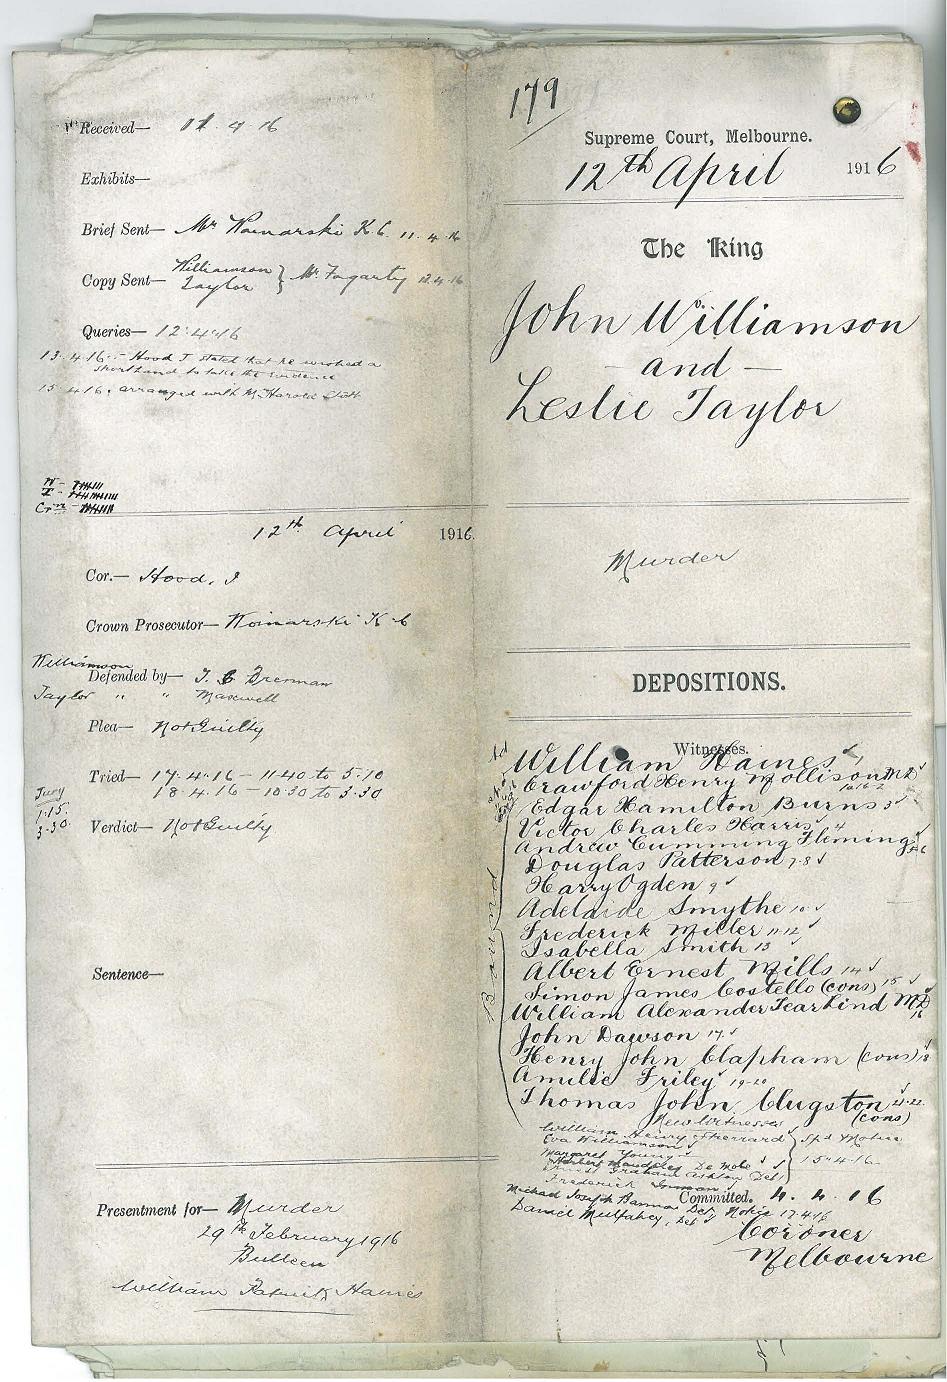 Received— 11. 4 16
Exhibits—
Brief Sent— Mr Woinarski K.C. 11. 4. 16
Copy Sent— Williamson } Mr. Fogarty 12.4.16
Taylor
Queries— 12.4.16
13. 4. 16 - Hood J stated that he wished a
shorthand to take the evidence
15. 4. 16. arranged with Mr Harold
W -
T -
Crn -
12th April 1916.
Cor.— Hood, J
Crown Prosecutor— Woinarski K.C
Williamson
Defended by— T. C Brennan
Taylor " " Maxwell
Plea— Not Guilty
Tried— 17. 4. 16 — 11.40 to 5.10
18. 4. 16 — 10.30 to 3.30
Jury
1.15.
3.30.
Verdict— Not Guilty
Sentence—
Presentment for— Murder
29th February 1916
Bulleen
William Patrick Haines
179
Supreme Court, Melbourne.
12th April 1916
The King
John Williamson
— and —
Leslie Taylor
Murder
DEPOSITIONS.
Witnesses.
Bound
William Haines 1
Crawford Henry Mollison M.D.
Edgar Hamilton Burns 3
Victor Charles Harris 4
Andrew Cumming Fleming 5-6
Douglas Patterson 7-8
Harry Ogden 9
Adelaide Smythe 10
Frederick Miller 11-12
Isabella Smith 13
Albert Ernest Mills 14
Simon James Costello (cons) 15
William Alexander MD
16
John Dawson 17
Henry John Clapham (cons) 18
Amilie Friley 19-20
Thomas John Clugston 21-22
(cons)
New Witnesses
William Henry Sherrard
Eva Williamson
Margaret Young
Ernest Graham Ashton Det
Frederick
15.4.16.
Michael Joseph Bannon Det Notice 17.4.16
Daniel Mulfahey, Det
Committed. 4. 4. 16
Coroner
Melbourne